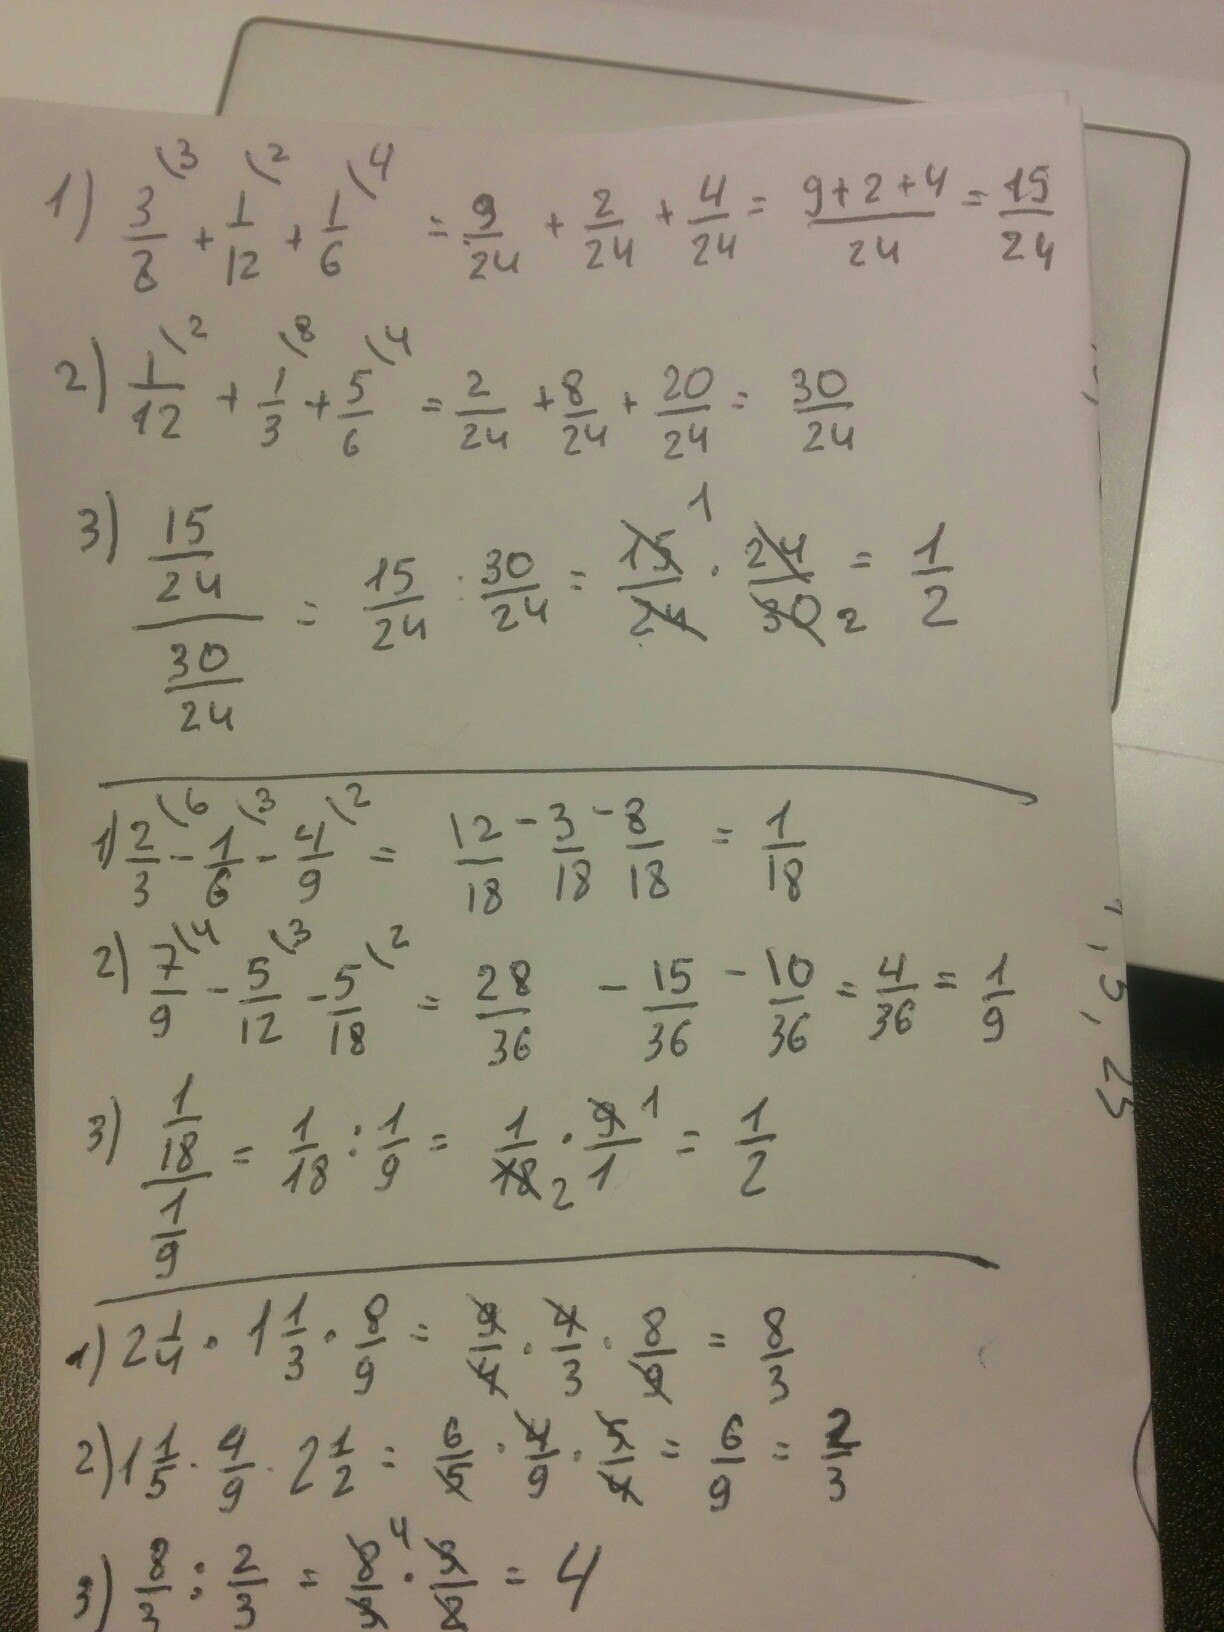 1) 3/8 (3 + 1/12 (2 + 1/6 (4 = 9/24 + 2/24 + 4/24 = 9+2+4/24 = 15/24
2) 1/12 (2 + 1/3 (8 + 5/6 (4 = 2/24 + 8/24 + 20/24 = 30/24
3) 15/24 / 30/24 = 15/24 : 30/24 = 15/24 1 · 24/30 2 = 1/2
1) 2/3 (6 - 1/6 (3 - 4/9 (2 = 12/18 - 3/18 - 8/18 = 1/18
2) 7/9 (4 - 5/12 (3 - 5/18 (2 = 28/36 - 15/36 - 10/36 = 4/36 = 1/9
3) 1/18 / 1/9 = 1/18 : 1/9 = 1/18 2 · 9/1 1 = 1/2
1) 2 1/4 · 1 1/3 · 8/9 = 9/4 · 4/3 · 8/9 = 8/3
2) 1 1/5 · 4/9 · 2 1/2 = 6/5 · 4/9 · 5/4 = 6/9 = 2/3
3) 8/3 : 2/3 = 8/3 4 · 3/2 = 4